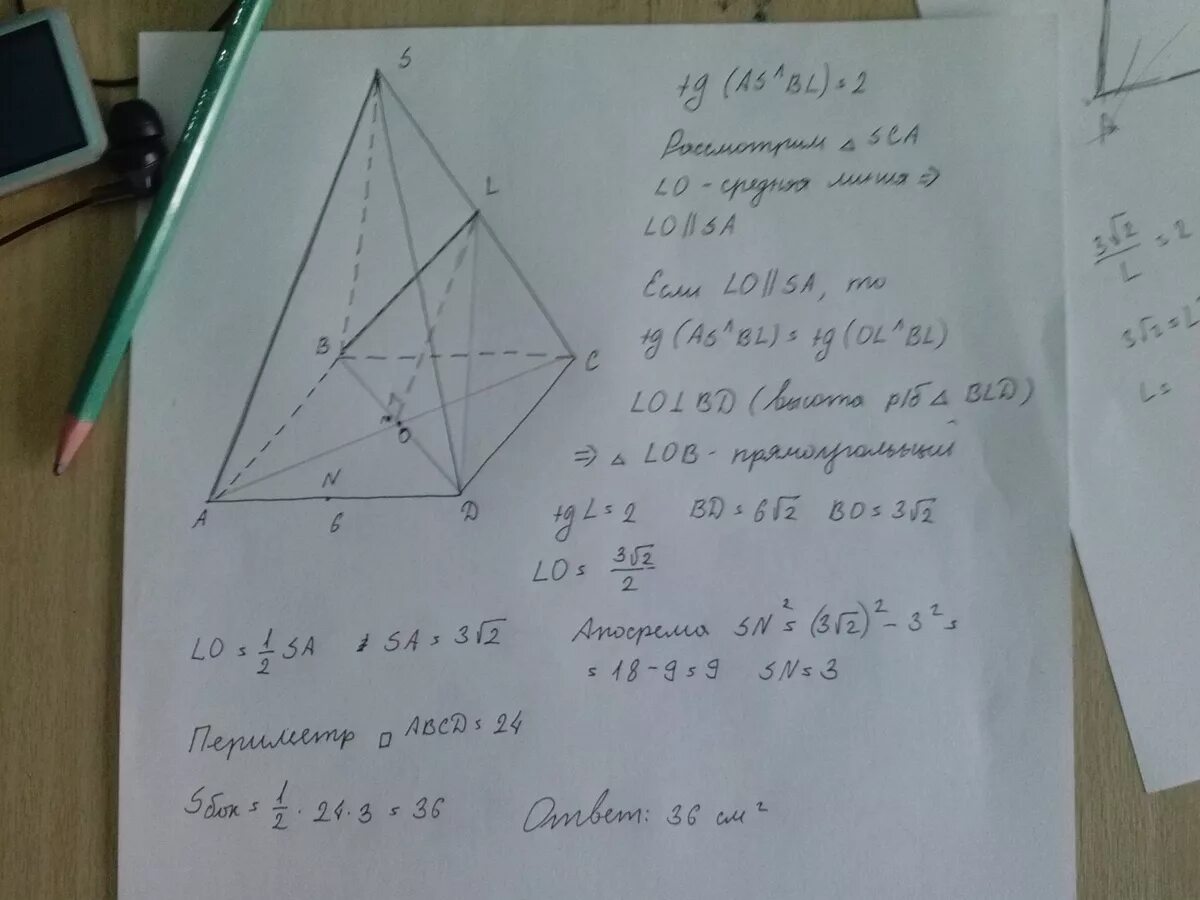 S
L
B
C
O
N
A
D
6
tg (AS^BL) = 2
Рассмотрим △ SCA
LO - средняя линия ⇒
LO || SA
Если LO || SA, то
tg (AS^BL) = tg (OL^BL)
LO ⊥ BD (высота р/б △ BLD)
⇒ △ LOB - прямоугольный
tg L = 2 BD = 6√2 BO = 3√2
LO = 3√2/2
LO = 1/2 SA SA = 3√2
Апофема SN² = (3√2)² - 3² =
= 18 - 9 = 9 SN = 3
Периметр □ ABCD = 24
Sбок = 1/2 · 24 · 3 = 36
Ответ: 36 см²
A
3√2/L = 2
3√2 = L
L =